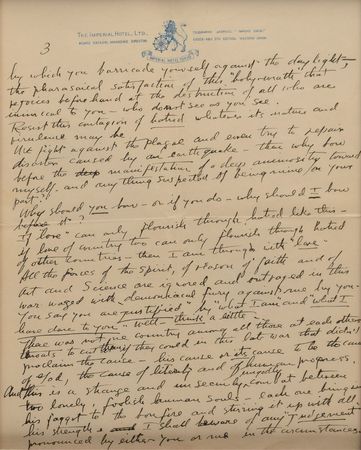 THE IMPERIAL HOTEL, LTD.,
IMPERIAL HOTEL TOKYO
3
by which you barricade yourself against the daylight—
the pharasaical satisfaction of this "holy wrath" that
rejoices beforehand at the destruction of all who are
inimical to you — who do not see as you see.
Resist this contagion of hatred whatever its nature and
virulence may be.
We fight against the plague and even try to repair
disaster caused by an earthquake — then why bow
before the manifestation of a deep animosity toward
myself and any thing suspected of being mine, on your
part?
Why should you bow — or if you do — why should I bow
before it?
If "love" can only flourish through hatred like this —
if love of country too can only flourish through hatred
of other countries — then I am through with "love"
All the forces of the spirit, of reason of faith and of
Art and Science are ignored and outraged in this
war waged with demoniacal fury against me by you.
You say you are justified by "what I am and what I
have done to you" — Well — think a little —
There was not one country among all those at each others
throats to cut they could in this last war that didn't
proclaim the cause — his cause or its cause to be the cause
of God, the cause of liberty and of human progress.
And this is a strange and unseemly combat between
two lonely, foolish human souls — each one bringing
his faggot to the bonfire and stirring it up with all
his strength. I shall beware of any "judgement"
pronounced by either you or me in the circumstances.